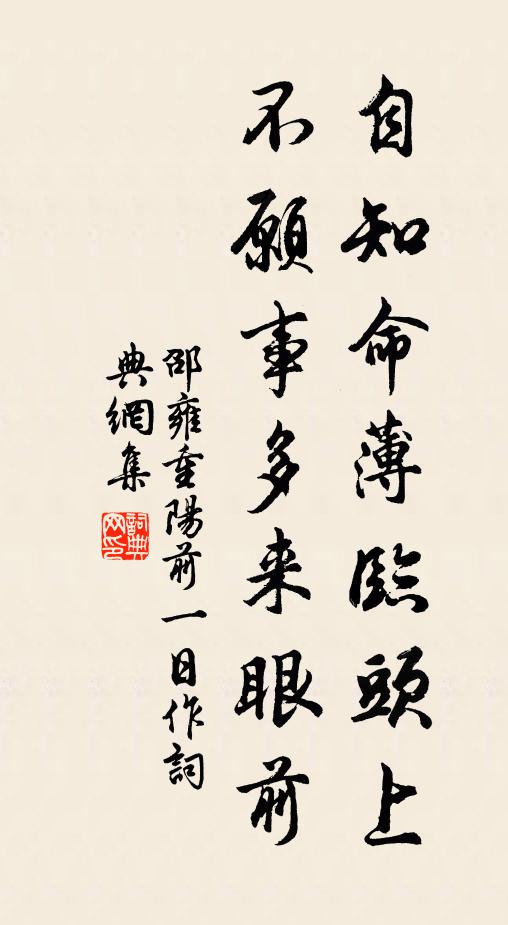 自知命薄臨頭上
不願事多来眼前
邵雍重陽前一日作詞
典網集
詞典
网印